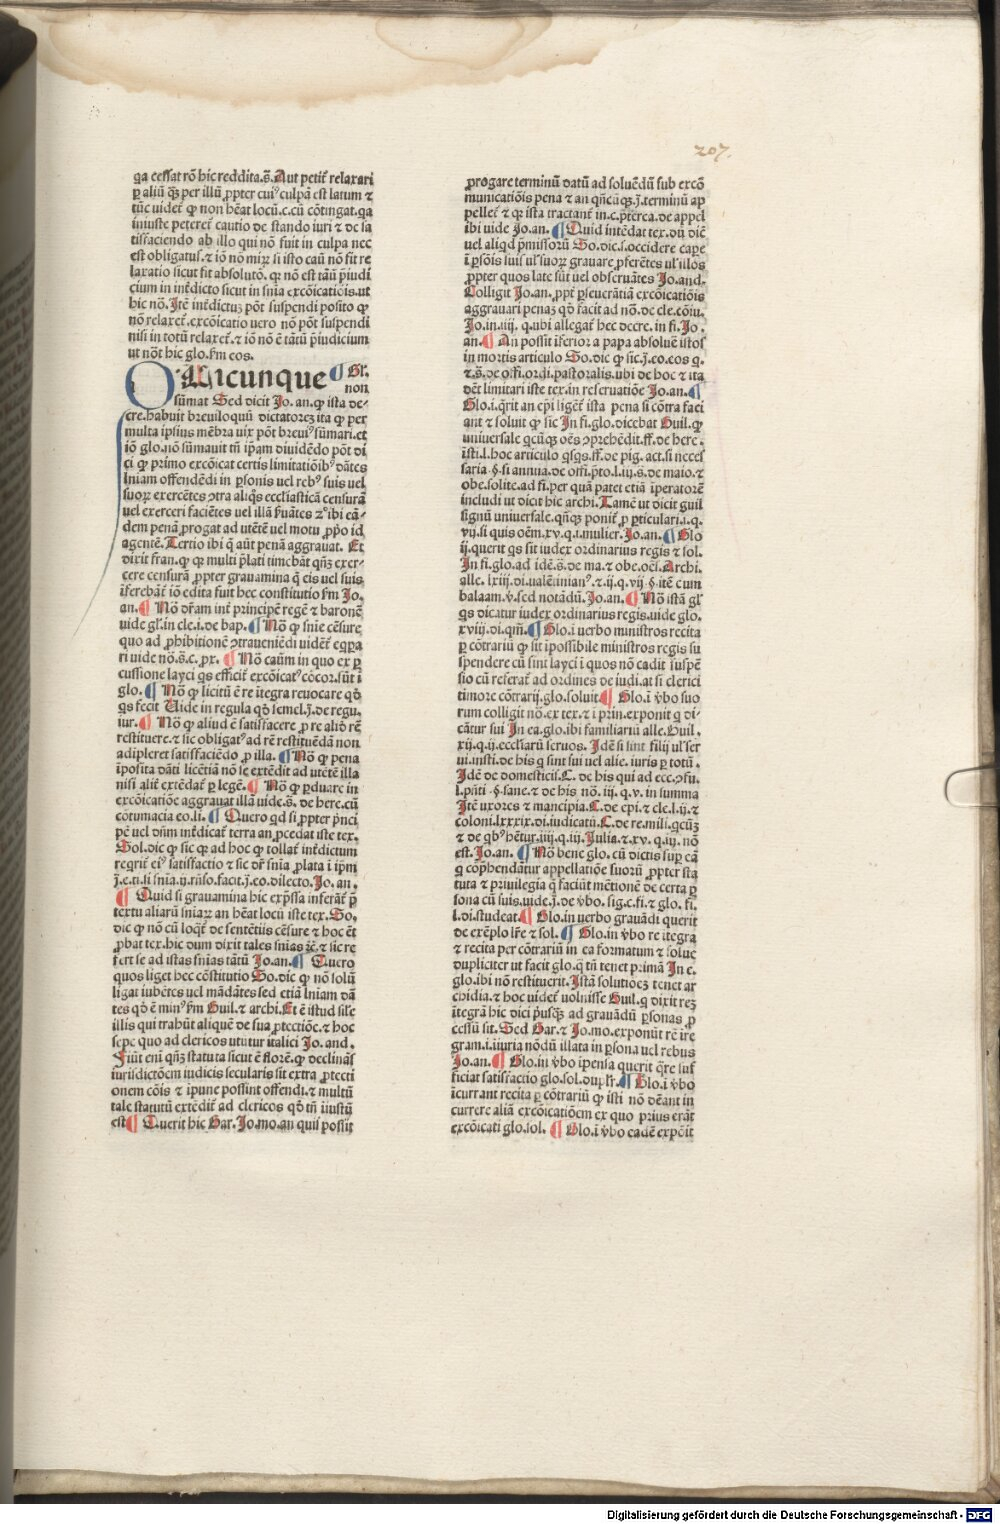 207.
qa cessat rō hic reddita.s̄. Aut petit̄ relaxari
ꝑ aliū qȝ̄ per illū ꝓpter cuiꝰ culpā est latum ⁊
tūc videt̄ ꝙ non hēat locū.c.cū cōtingat.qa
iniuste peteret̄ cautio de stando iuri ⁊ de sa
tisfaciendo ab illo qui nō fuit in culpa nec
est obligatus.⁊ iō nō miꝝ si isto caū nō fit re
laxatio sicut fit absolutō. qꝛ nō est tātū p̄iudi
cium in int̄dicto sicut in sn̄ia excōicatiōis.ut
hic nō. Itē int̄dictuȝ pōt suspendi posito ꝙ
nō relaxet̄.excōicatio uero nō pōt suspendi
nisi in totū relaxet̄.⁊ iō nō ē tātū p̄iudicium
ut nōt̄ hic glo.ẜm eos.
Quicunque ¶ Gl̄.
non
sūmat Sed dicit Jo. an.ꝙ ista de-
cre.habuit breuiloquū dictatoreȝ ita ꝙ per
multa ipsius mēbra uix pōt breuiꝰ sūmari.et
iō glo.nō sūmauit tn̄ ip̄am diuidēdo pōt di
ci ꝙ primo excōicat certis limitatiōibꝰ dātes
ln̄iam offendēdi in ꝑsonis uel rebꝰ suis uel
suoꝝ exercētes ↄtra aliq̄s ecclīasticā censurā
uel exerceri faciētes uel illā ẜuātes 2ꝰ ibi eā-
dem penā ꝓrogat ad utētē uel motu ꝓp̄o id
agentē. Tertio ibi q̄ aūt penā aggrauat. Et
dixit fran.ꝙ qꝛ multi p̄lati timebāt qn̄ȝ exer-
cere censurā ꝓpter grauamina q̄ eis uel suis
īferebāt̄ iō edita fuit hec constitutio ẜm Jo.
an. ¶ Nō dr̄am int̄ principē regē ⁊ baronē
uide gl̄.in cle.i.de bap. ¶ Nō ꝙ sn̄ie cēsure
quo ad ꝓhibitionē ↄtraueniēdi uidēt̄ eqꝑa
ri uide nō.s̄.c.ꝓx. ¶ Nō caūm in quo ex ꝑ
cussione layci qs efficit̄ excōicatꝰ cōcor.sūt i
glo. ¶ Nō ꝙ licitū ē re ītegra reuocare qd̄
qs fecit Uide in regula qd̄ semel.j̄.de regu.
iur. ¶ Nō ꝙ aliud ē satisfacere ꝓ re aliō rē
restituere.⁊ sic obligatꝰ ad rē restituēdā non
adipleret satisfaciēdo ꝓ illa. ¶ Nō ꝙ pena
īposita dāti licētiā nō se extēdit ad utētē illa
nisi alit̄ extēdat̄ ꝑ legē. ¶ Nō ꝙ ꝑduare in
excōicatiōe aggrauat illā uide.s̄. de here.cū
cōtumacia eo.li. ¶ Quero qd si ꝓpter p̄nci
pē uel dn̄m int̄dicat̄ terra an ꝓcedat iste tex.
Sol.dic ꝙ sic qꝛ ad hoc ꝙ tollat̄ int̄dictum
reqrit̄ eiꝰ satisfactio ⁊ sic dr̄ sn̄ia ꝓlata i ip̄m
j̄.e.ti.si sn̄ia.ij.rn̄so.facit.j̄.eo.dilecto. Jo. an.
¶ Quid si grauamina hic exp̄ssa inferāt̄ p̄
textu aliarū sn̄iaꝝ an hēat locū iste tex. So.
dic ꝙ nō cū loqt̄ de sentētiis cēsure ⁊ hoc ēt
ꝓbat tex.hic dum dixit tales sn̄ias ⁊c̄.⁊ sic re
fert se ad istas sn̄ias tātū Jo.an. ¶ Quero
quos liget hec cōstitutio So.dic ꝙ nō solū
ligat iubētes uel mādātes sed etiā ln̄iam dā
tes qd̄ ē minꝰ ẜm Guil.⁊ archi. Et ē istud sil̄e
illis qui trahūt aliquē de sua ꝓtectiōe.⁊ hoc
sepe quo ad clericos utūtur italici Jo. and.
Fiūt eni qn̄ȝ statuta sicut ē florē.ꝙ declināſ
iurisdictōem iudicis secularis sit extra ꝓtecti
onem cōis ⁊ ipune possint offendi.⁊ multū
tale statutū extēdit̄ ad clericos qd̄ tn̄ iiustū
est ¶ Querit hic Gar. Jo.mo.an quis possit
ꝓrogare terminū datū ad soluēdū sub excō
municatiōis pena ⁊ an qn̄cūqȝ.j̄.terminū ap
pellet̄ ⁊ qꝛ ista tractant̄ in.c.p̄terea.de appel
ibi uide Jo.an. ¶ Quid intēdat tex.dū diē
uel aliqd p̄missorū So.dic.s.occidere cape
i ꝑsōis suis ul̄ suoꝝ grauare ꝓferētes ul̄ illos
ꝓpter quos late sūt uel obseruātes Jo.and.
Colligit Jo.an.ꝓpt̄ ꝑseuerātiā excōicatiōis
aggrauari penaȝ qd̄ facit ad nō.de cle.cōiu.
Jo.in.iiij. q.ubi allegat̄ hec decre. in fi. Jo.
an. ¶ An possit iferior a papa absoluē istos
in mortis articulo So.dic ꝙ sic.j̄.eo.eos q.
⁊.s̄.de offi.ordi.pastoralis.ubi de hoc ⁊ ita
dēt̄ limitari iste tex.in reseruatiōe Jo.an. ¶
Glo.i.qrit an ep̄i liget̄ ista pena si cōtra faci
ant ⁊ soluit ꝙ sic In fi.glo.dicebat Guil.ꝙ
uniuersale qcūqȝ oēs ↄprehēdit.ff.de here.
īsti.l.hoc articulo qsqs.ff.de pig.act.si neces
saria.§.si annua.de offi.p̄to.l.iij.s̄.de maio.⁊
obe.solite.ad fi.per quā patet etiā īperatorē
includi ut dicit hic archi. Tamē ut dicit guil
signū uniuersale.qn̄qȝ ponit̄ ꝓ ꝑticulari.i.q.
vij.si quis oēm.xv.q.i.mulier. Jo.an. ¶ Glo
ij.querit qs sit iudex ordinarius regis ⁊ sol.
In fi.glo.ad idē.s̄.de ma.⁊ obe.oēs. Archi.
alle. lxiij.di.ualēinianꝰ.⁊.ij.q.vij.§.itē cum
balaam.v.sed notādū. Jo.an. ¶ Nō istā gl̄
qs dicatur iudex ordinarius regis.uide glo.
xviij.di.qm̄. ¶ Glo.i uerbo ministros recita
ꝑ cōtrariū ꝙ sit ipossibile ministros regis su
spendere cū sint layci i quos nō cadit suspē
sio cū referat̄ ad ordines de iudi.at si clerici
timore cōtrarij.glo.soluit. ¶ Glo.i v̄bo suo
rum colligit nō.ex tex.⁊ i prin.exponit q di-
cātur sui In ea.glo.ibi familiariū alle. Guil.
xij.q.ij.ecclīarū seruos. Idē si sint filij ul̄ ser
ui.insti.de his q sint sui uel alie. iuris ꝑ totū.
Idē de domesticis. C. de his qui ad ecc.ↄfu.
l.pn̄ti.§.sane.⁊ de his nō. iij. q. v. in summa
Itē uxores ⁊ mancipia. C.de epi.⁊ cle.l.ij.⁊
coloni.lxxxix.di.iudicatū. C.de re.mili.qcūȝ
⁊ de qbꝰ hētur.iiij.q.iij. Julia.⁊.xv. q.iij. nō
est. Jo.an. ¶ Nō bene glo. cū dictis suꝑ eā
q cop̄hendātur appellatiōe suorū ꝓpter sta
tuta ⁊ priuilegia q̄ faciūt mētionē de certa ꝑ
sona cū suis.uide.j̄.de v̄bo. sig.c.fi.⁊ glo. fi.
l.di.studeat. ¶ Glo.in uerbo grauādi querit
de exēplo lr̄e ⁊ sol. ¶ Glo.in v̄bo re itegra
⁊ recita per cōtrariū in ea formatum ⁊ solue
dupliciter ut facit glo.ꝙ tn̄ tenet primā In e.
glo.ibi nō restituerit. Istā solutioeȝ tenet ar
chidia.⁊ hoc uidet̄ uoluisse Guil.ꝙ dixit reȝ
itegrā hic dici p̄usqȝ̄ ad grauādū ꝑsonas ꝓ
cessū sit. Sed Gar.⁊ Jo.mo.exponūt rē ite
gram.i.iiuria nōdū illata in ꝑsona uel rebus
Jo.an. ¶ Glo.in v̄bo ipensa querit q̄re suf
ficiat satisfactio glo.sol.duplr̄. ¶ Glo.i v̄bo
icurrant recita ꝑ cōtrariū ꝙ isti nō dēant in
currere aliā excōicatiōem ex quo prius erāt
excōicati glo.sol. ¶ Glo.i v̄bo eadē expōit
Digitalisierung gefördert durch die Deutsche Forschungsgemeinschaft - DFG